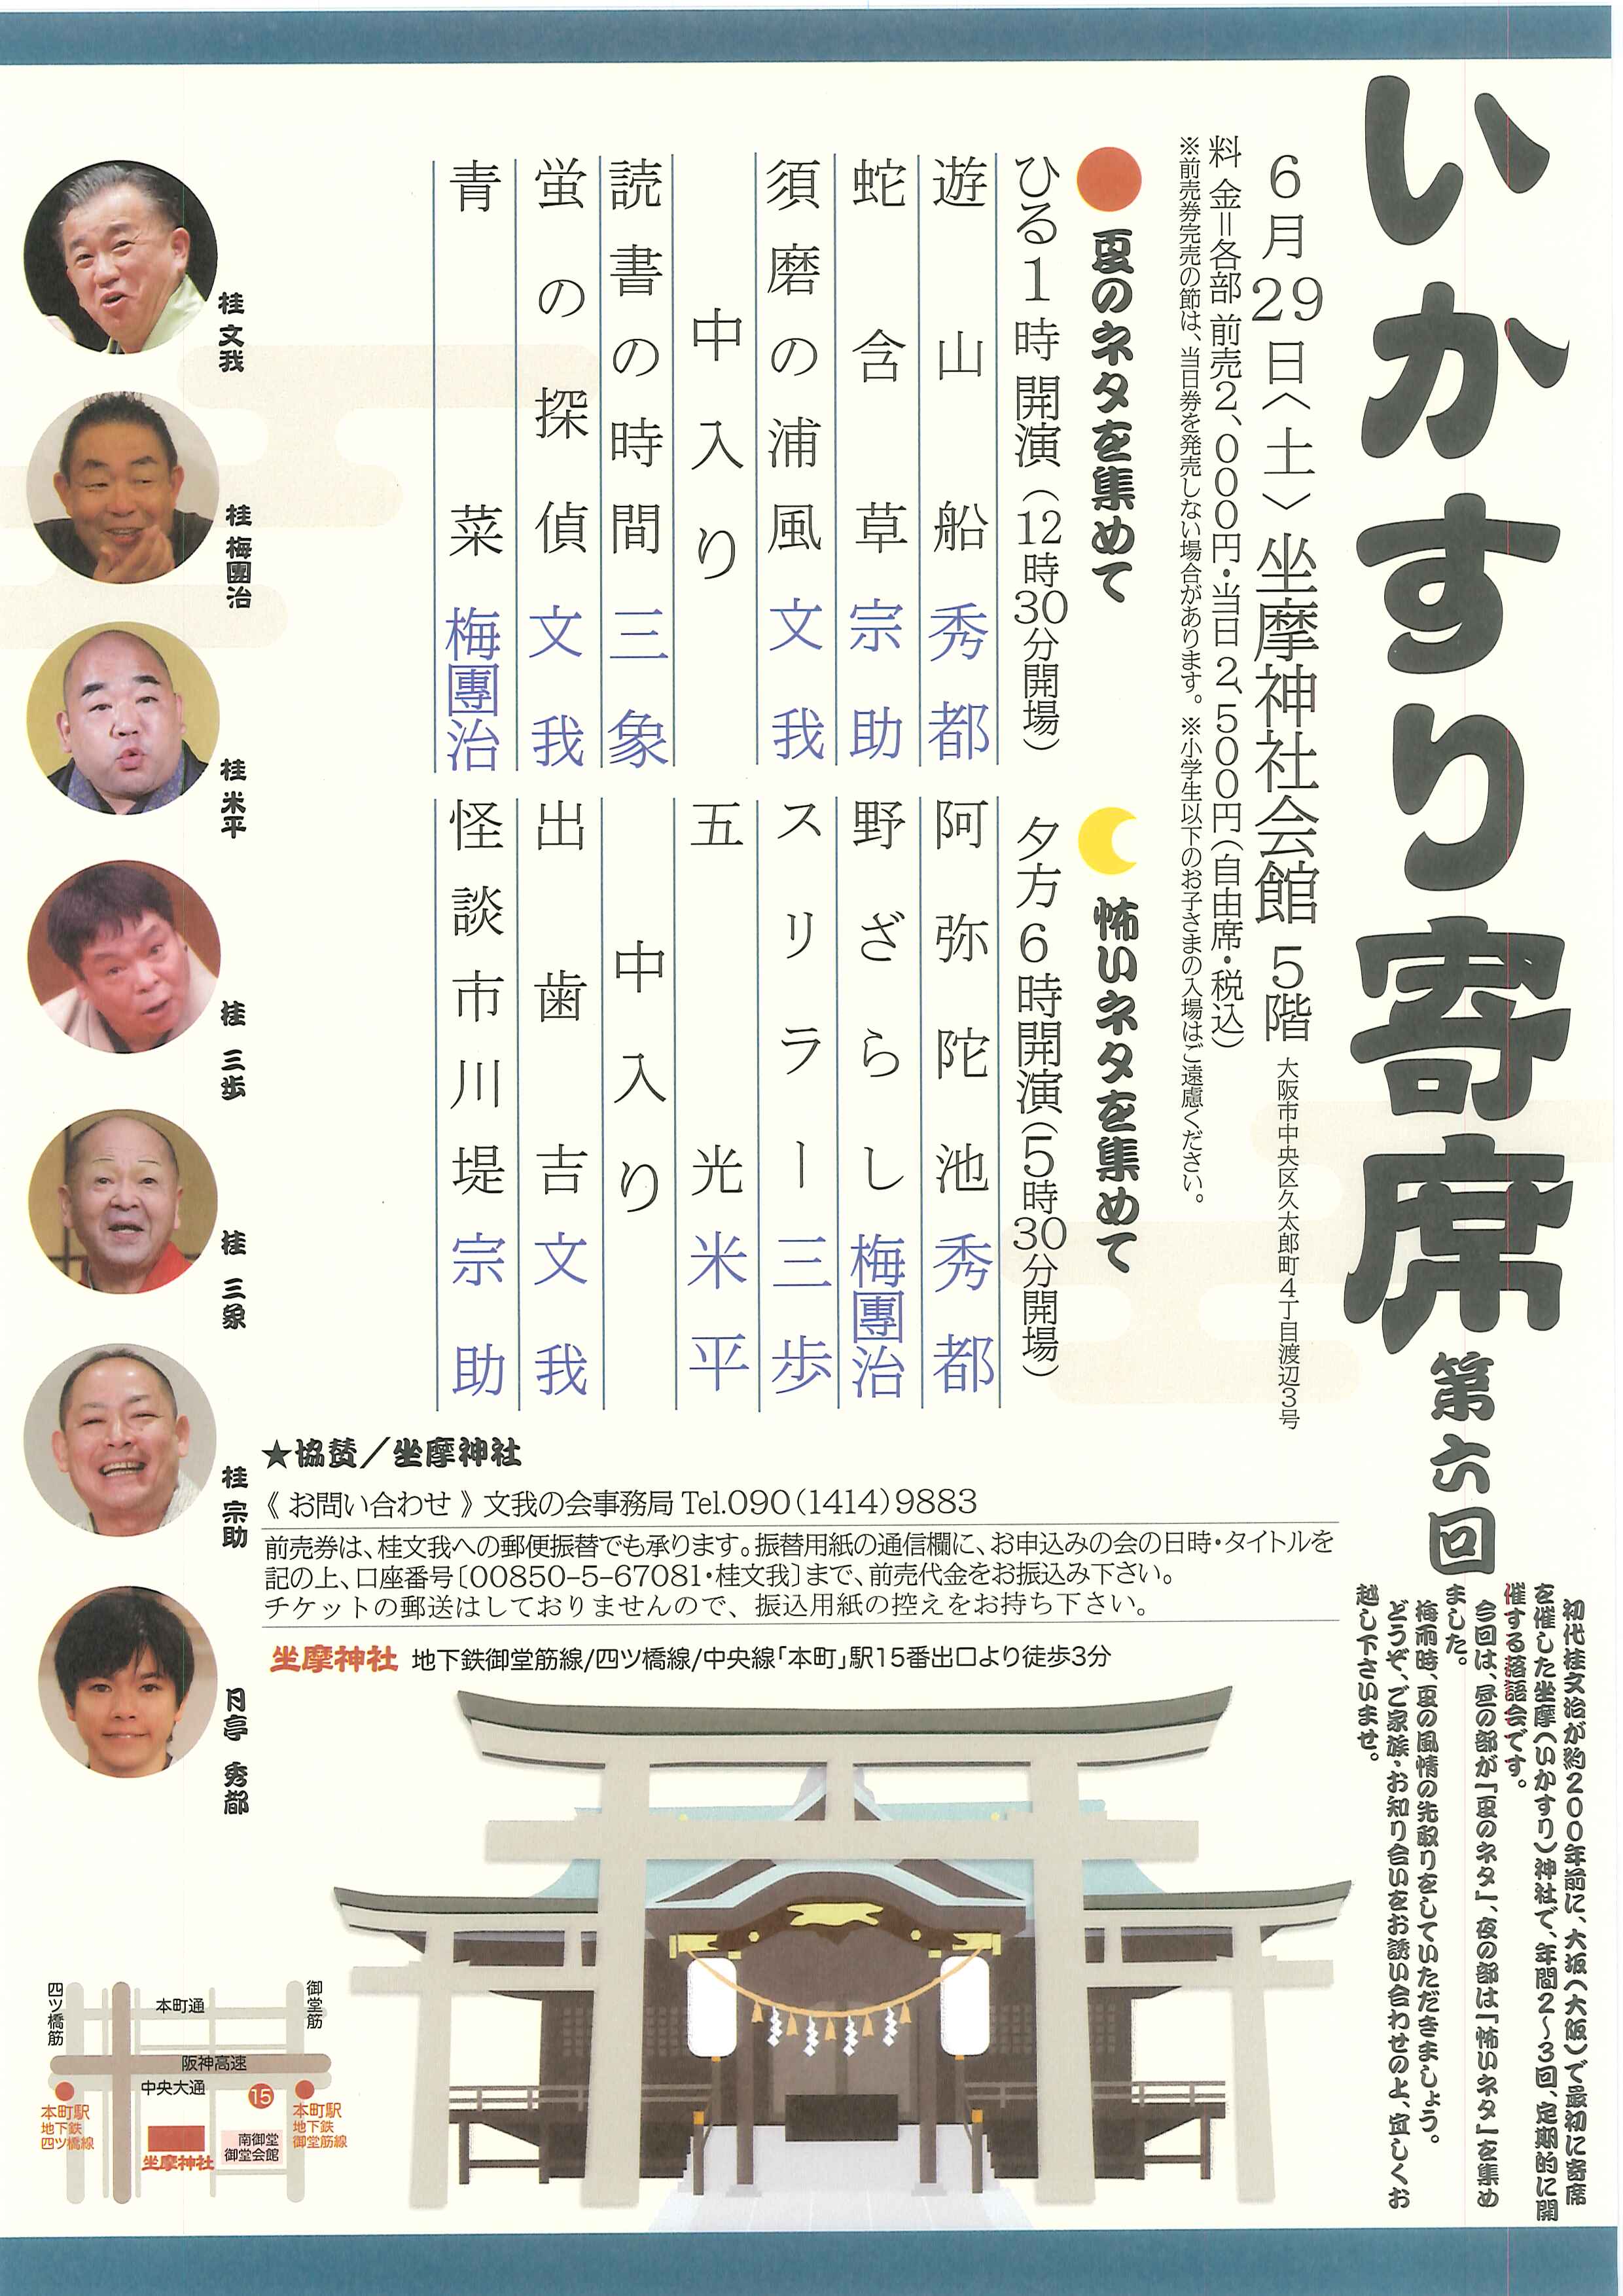 いかすり寄席 第六回
初代桂文治が約200年前に、大坂(大阪)で最初に寄席
を催した坐摩(いかすり)神社で、年間2〜3回、定期的に開
催する落語会です。
今回は、昼の部が『夏のネタ』、夜の部は『怖いネタ』を集め
ました。
梅雨時、夏の風情の先取りをしていただきましょう。
どうぞ、ご家族・お知り合いをお誘い合わせの上、宜しくお
越し下さいませ。
6月29日〈土〉坐摩神社会館 5階 大阪市中央区久太郎町4丁目渡辺3号
料金=各部 前売2、000円・当日2、500円(自由席・税込)
※前売券完売の節は、当日券を発売しない場合があります。※小学生以下のお子さまの入場はご遠慮ください。
夏のネタを集めて
ひる1時開演(12時30分開場)
遊山船 秀都
蛇含草 宗助
須磨の浦風 文我
中入り
読書の時間 三象
蛍の探偵 文我
青菜 梅團治
怖いネタを集めて
夕方6時開演(5時30分開場)
阿弥陀池 秀都
野ざらし 梅團治
スリラー 三歩
五光 米平
中入り
出歯吉 文我
怪談市川堤 宗助
桂 文我
桂 梅團治
桂 米平
桂 三歩
桂 三象
桂 宗助
月亭 秀都
★協賛/坐摩神社
《 お問い合わせ 》 文我の会事務局 Tel.090(1414)9883
前売券は、桂文我への郵便振替でも承ります。振替用紙の通信欄に、お申込みの会の日時・タイトルを
記の上、口座番号〔00850-5-67081・桂文我〕まで、前売代金をお振込み下さい。
チケットの郵送はしておりませんので、振込用紙の控えをお持ち下さい。
坐摩神社 地下鉄御堂筋線/四ツ橋線/中央線「本町」駅15番出口より徒歩3分
四ツ橋筋
御堂筋
本町通
阪神高速
中央大通
15
本町駅
地下鉄
四ツ橋線
本町駅
地下鉄
御堂筋線
南御堂
御堂会館
坐摩神社